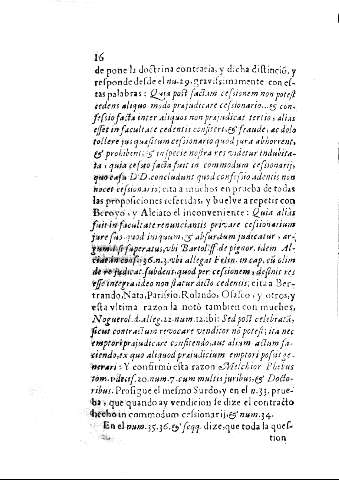 16
de pone la doctrina contraria, y dicha distinció, y
responde desde el nu. 29. gravissimamente con es-
tas palabras: Quia post factam cessionem non potest
cedens aliquo modo præjudicare cessionario... & con-
fessio facta inter aliquos non præjudicat tertio, alias
esset in facultate cedentis consistere, & fraude, ac dolo
tollere jus quæsitum cessionario quod jura abhorrent,
& prohibent, & in specie nostra res videtur indubita-
ta, quia cessio facta fuit in commodum cessionarij,
quo casu DD. concludunt quod confessio cedentis non
nocet cessionario; cita a muchos en prueba de todas
las proposiciones referidas, y buelve a repetir con
Beroyo, y Alciato el inconveniente: Quia alias
fuit in facultate renunciantis privare cessionarium
jure suo, quod iniquum, & absurdum judicatur, ar-
Bart. diff. de pignor. idem Al-
36. n. 3. vbi allegat Felin. in cap. cũ olim
de re judicat. subdens, quod per cessionem, desinit res
esse integra, ideo non statur dicto cedentis; cita a Ber-
trando, Nata, Parisio, Rolando, Osasco, y otros, y
esta vltima razon la notò tambien con muchos,
Noguerol. d. alleg. 12. num. 12. ibi: Sed post celebratũ,
sicut contractum revocare venditor nõ potest; ita nec
emptori præjudicare confitendo, aut alium actum fa-
ciendo, ex quo aliquod præjudicium emptori possit ge-
nerari: Y confirmó esta razon Melchior Phebus
tom. 1. decis. 20. num. 7. cum multis juribus, & Docto-
ribus. Prosigue el mesmo Surdo, y en el n. 33. prue-
ba, que quando ay vendicion se dize el contracto
hecho in commodum cessionarij, & num. 34.
En el num. 35. 36. & seqq. dize, que toda la ques-
tion